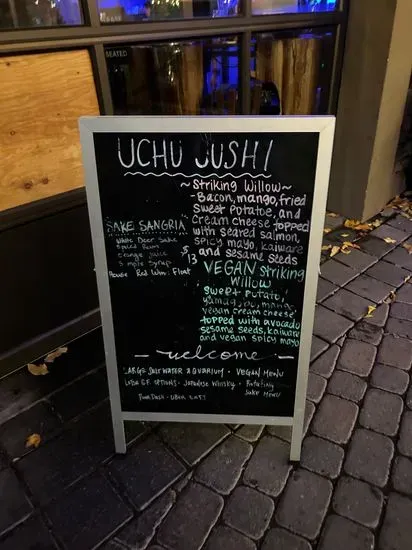 SEATED
UCHU JUSHI
~ Striking Willow ~
- Bacon, mango, fried
sweet Potatoe, and
cream cheese topped
with seared salmon,
spicy mayo, kaiware
and sesame seeds
SAKE SANGRIA
White Deer Sake
Spiced Rum
orange Juice
Maple Syrup
House Red Wine Float
$
13
VEGAN striking
Willow
sweet potato,
mango
vegan cream cheese
topped with avocado
sesame seeds, kaiware
and vegan spicy mayo
- welcome -
LARGE SALTWATER AQUARIUM • VEGAN MENU
G.F. OPTIONS • Japanese Whisky • Rotating
Sake Menu
Door Dash • UBER EATS